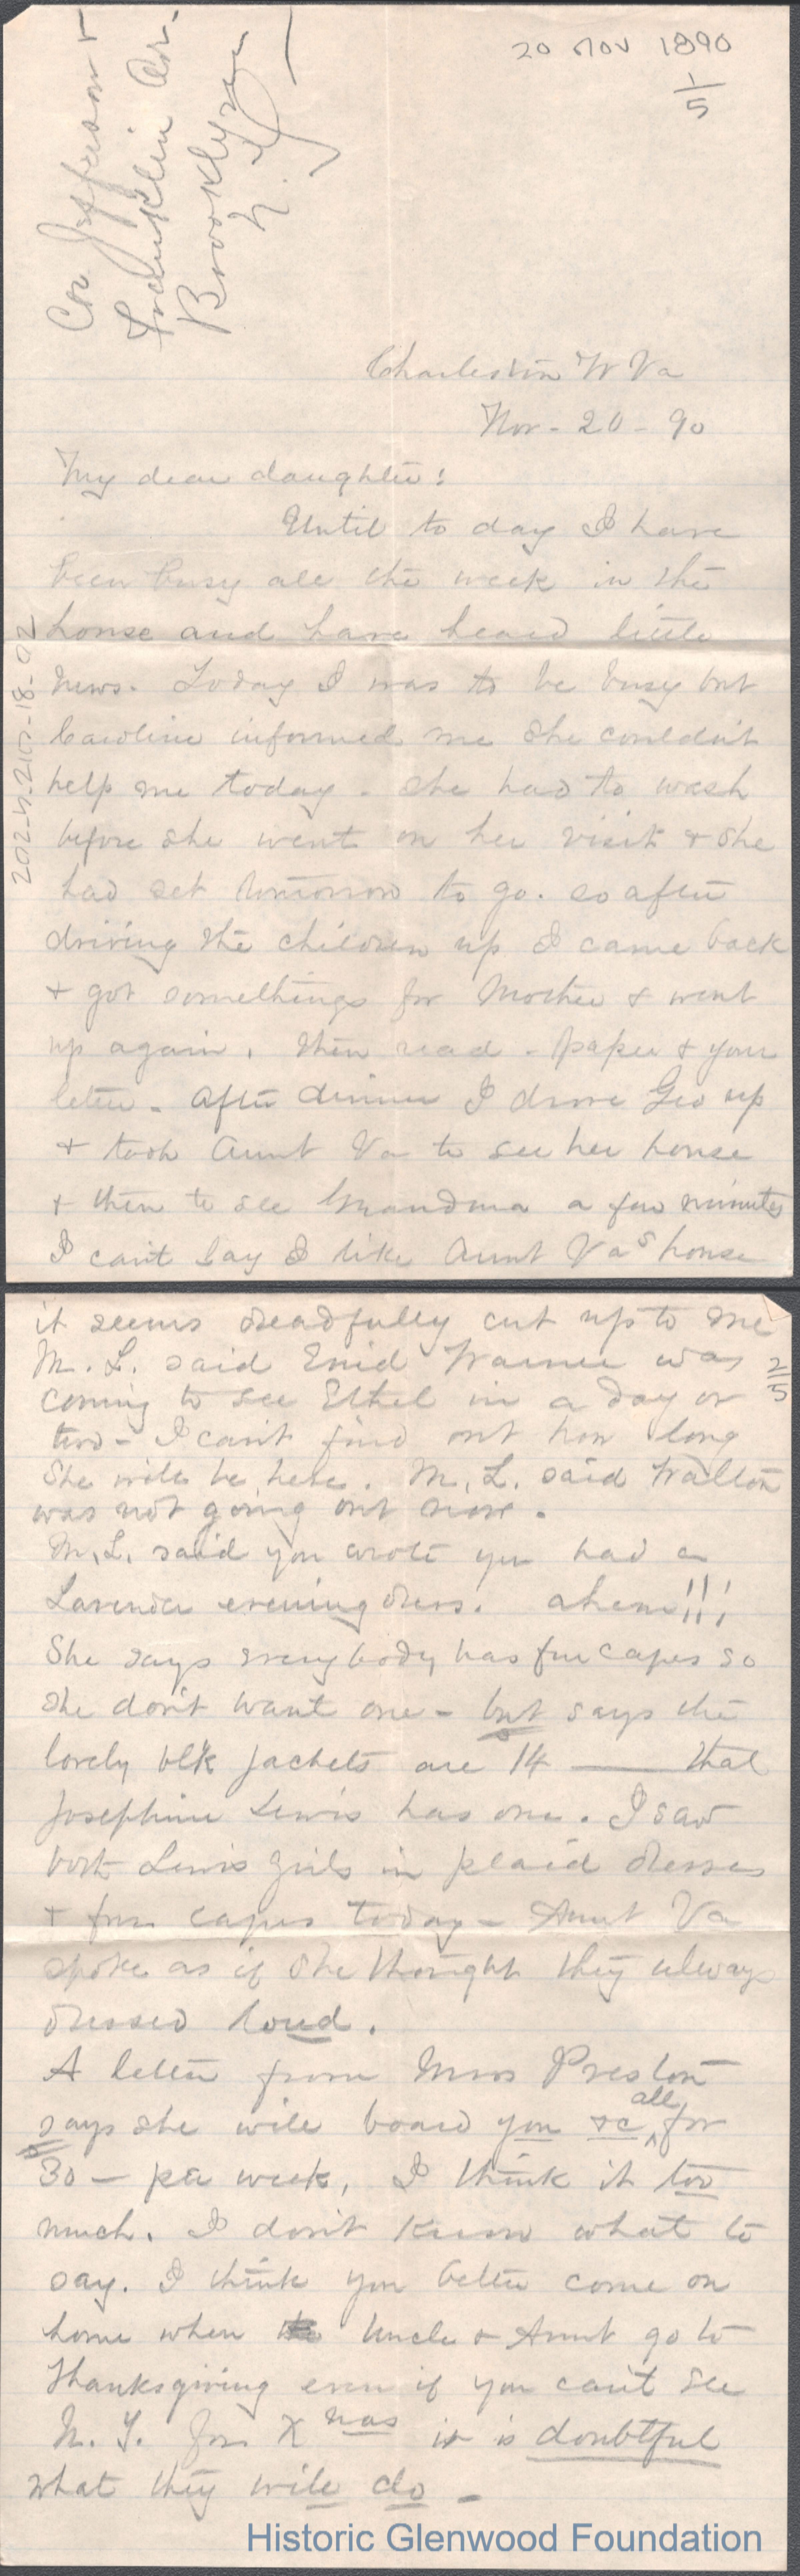 20 Nov 1890
1/5
Cor Jefferson &
Franklin Av.
Brooklyn
N. Y.
Charleston W Va
Nov - 20 - 90
My dear daughter:
Until to day I have
been busy all the week in the
house and have heard little
news. Today I was to be busy but
Caroline informed me she couldn't
help me today. She had to wash
before she went on her visit & she
had set tomorrow to go. so after
driving the children up I came back
& got somethings for Mother & went
up again. then read - paper & your
letter - After dinner I drove Geo up
& took Aunt Va to see her house
& then to see Grandma a few minutes
I can't say I like Aunt Va's house
it seems dreadfully cut up to me
2/5
M. L. said Enid was
coming to see Ethel in a day or
two - I can't find out how long
she will be here. M. L. said Walton
was not going out now.
M. L. said you wrote you had a
Lavender evening dress. ahem!!!
She says everybody has fur capes so
she don't want one - but says the
lovely blk jackets are 14 — that
Josephine Lewis has one. I saw
both Lewis girls in plaid dresses
& fur capes today - Aunt Va
spoke as if she thought they always
dressed loud.
A letter from Mrs Preston
says she will board you all for
30 - per week, I think it too
much. I don't know what to
say. I think you better come on
home when Uncle & Aunt go to
Thanksgiving even if you can't see
N. Y. for Xmas it is doubtful
what they will do -
2024.2107.18.02
Historic Glenwood Foundation